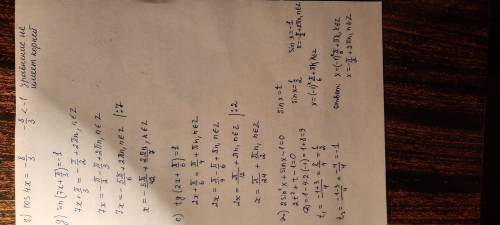 г) cos 4x = - 5/3   - 5/3 < -1   Уравнение не имеет корней
д) sin(7x + π/3) = -1
7x + π/3 = - π/2 + 2πn, n∈Z
7x = - π/2 - π/3 + 2πn, n∈Z
7x = - 5π/6 + 2πn, n∈Z | :7
x = - 5π/42 + 2πn/7, n∈Z
е) tg(2x + π/6) = 1
2x + π/6 = π/4 + πn, n∈Z
2x = π/4 - π/6 + πn, n∈Z
2x = π/12 + πn, n∈Z | :2
x = π/24 + πn/2, n∈Z
ж) 2sin²x + sinx - 1 = 0   sinx = t
2t² + t - 1 = 0
D = 1 - 4·2·(-1) = 1 + 8 = 9
t₁ = (-1+3)/4 = 2/4 = 1/2
t₂ = (-1-3)/4 = -4/4 = -1
sinx = 1/2
x = (-1)ᵏ π/6 + πk, k∈Z
sin x = -1
x = - π/2 + 2πn, n∈Z
Ответ: x = (-1)ᵏ π/6 + πk, k∈Z
x = - π/2 + 2πn, n∈Z